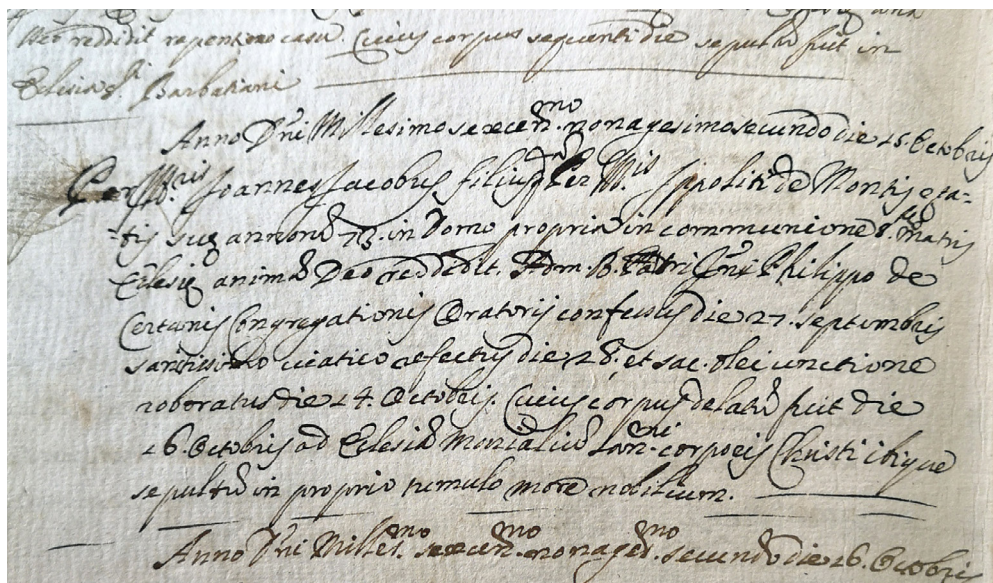 Deo reddidit repentino casu. Cuius corpus sequenti die sepultũ fuit in
Eclesia S.ti Barbatiani
Anno Dñi Millesimo sexcen.mo nonagesimosecundo die 15. Octobris
Per Ill.ris Joannes Jacobus filius q. Per Ill.is Ippoliti de Montij æta-
tis suę annorũ 73. in Domo propria in communione S. Matris
Eclesię animã Deo reddidit. Philippo de
Certanis Congregationis Oratorij confessus die 27. Septembris
santissimo viatico refectus die 28. et sac. olei unctione
roboratus die 14. Octobris. Cuius corpus delatũ fuit die
16. Octobris ad Eclesiã Monialiũ San.mi corporis Christi ibique
sepultũ in proprio tumulo more nobilium.
Anno Dñi Milles.mo sexcen.mo nonages.mo secundo die 16. Octobris